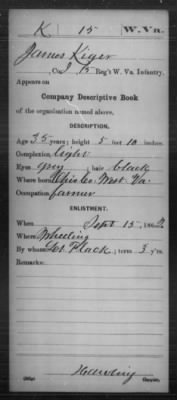 K 15 W. Va.
James Kiger
Co. K, 15 Reg't W. Va. Infantry.
Appears on
Company Descriptive Book
of the organization named above.
DESCRIPTION.
Age 35 years; height 5 feet 10 inches.
Complexion Light
Eyes gray; hair black
Where born West Va.
Occupation farmer
ENLISTMENT.
When Sept 15, 186
Where Wheeling
By whom Lt. Flack; term 3 y'rs.
Remarks:
Copyist.